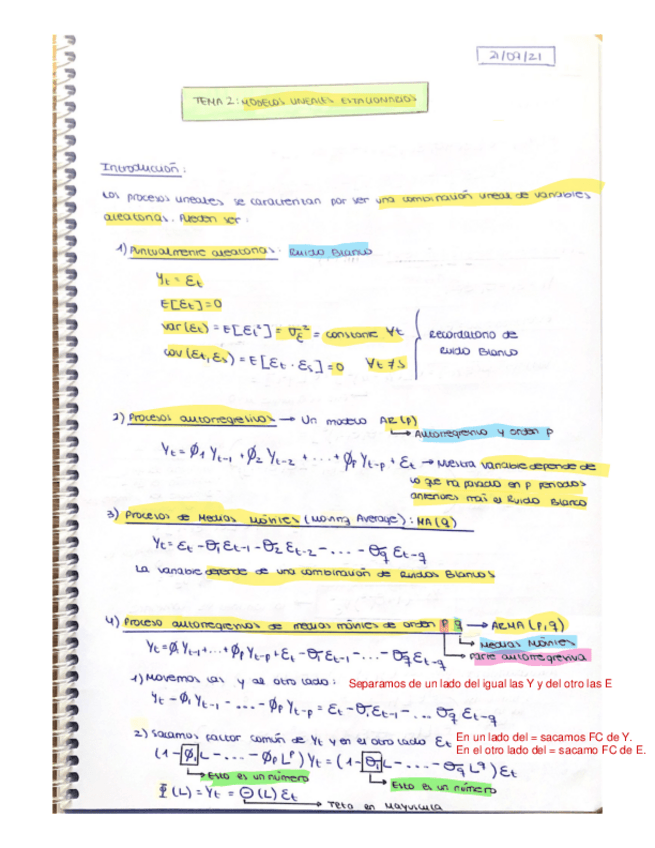 21/09/21
TEMA 2: MODELOS LINEALES ESTACIONARIOS
Introducción:
Los procesos lineales se caracterizan por ser una combinación lineal de variables
aleatorias. Pueden ser:
1) Puntualmente aleatorias: Ruido Blanco
Yt = εt
E[εt] = 0
var(εt) = E[εt²] = σε² = constante ∀t
Recordatorio de
Ruido Blanco
cov(εt, εs) = E[εt · εs] = 0 ∀t ≠ s
2) Procesos autorregresivos → Un modelo AR(p)
→ Autorregresivo y orden p
Yt = φ1 Yt-1 + φ2 Yt-2 + ... + φp Yt-p + εt → Nuestra variable depende de
lo que ha pasado en p periodos
anteriores más el Ruido Blanco
3) Procesos de Medias Móviles (Moving Average): MA(q)
Yt = εt - θ1 εt-1 - θ2 εt-2 - ... - θq εt-q
La variable depende de una combinación de Ruidos Blancos
4) Proceso autorregresivos de medias móviles de orden p q → ARMA(p,q)
→ Medias Móviles
→ parte autorregresiva
Yt = φ1 Yt-1 + ... + φp Yt-p + εt - θ1 εt-1 - ... - θq εt-q
1) Movemos las Y al otro lado: Separamos de un lado del igual las Y y del otro las E
Yt - φ1 Yt-1 - ... - φp Yt-p = εt - θ1 εt-1 - ... θq εt-q
2) Sacamos factor común de Yt y en el otro lado εt En un lado del = sacamos FC de Y.
En el otro lado del = sacamo FC de E.
(1 - φ1 L - ... - φp L^p) Yt = (1 - θ1 L - ... - θq L^q) εt
→ Esto es un número
→ Esto es un número
Φ(L) = Yt = Θ(L) εt
→ Teta en Mayuscula